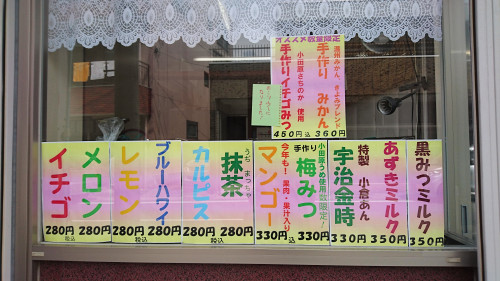 オススメ数量限定
温州みかん、きよみブレンド
手作り みかん
360円
小田原さちのか 使用
手作りイチゴみつ
450円
込
黒みつミルク
350円
あずきミルク
350円
特製 小倉あん
宇治金時
330円
小田原うめ使用数限定!
手作り
梅みつ
330円
今年も! 果肉・果汁入り
マンゴー
330円
込
うじ まっちゃ
抹茶
280円
カルピス
280円
税込
ブルーハワイ
280円
レモン
280円
税込
メロン
280円
イチゴ
280円
税込